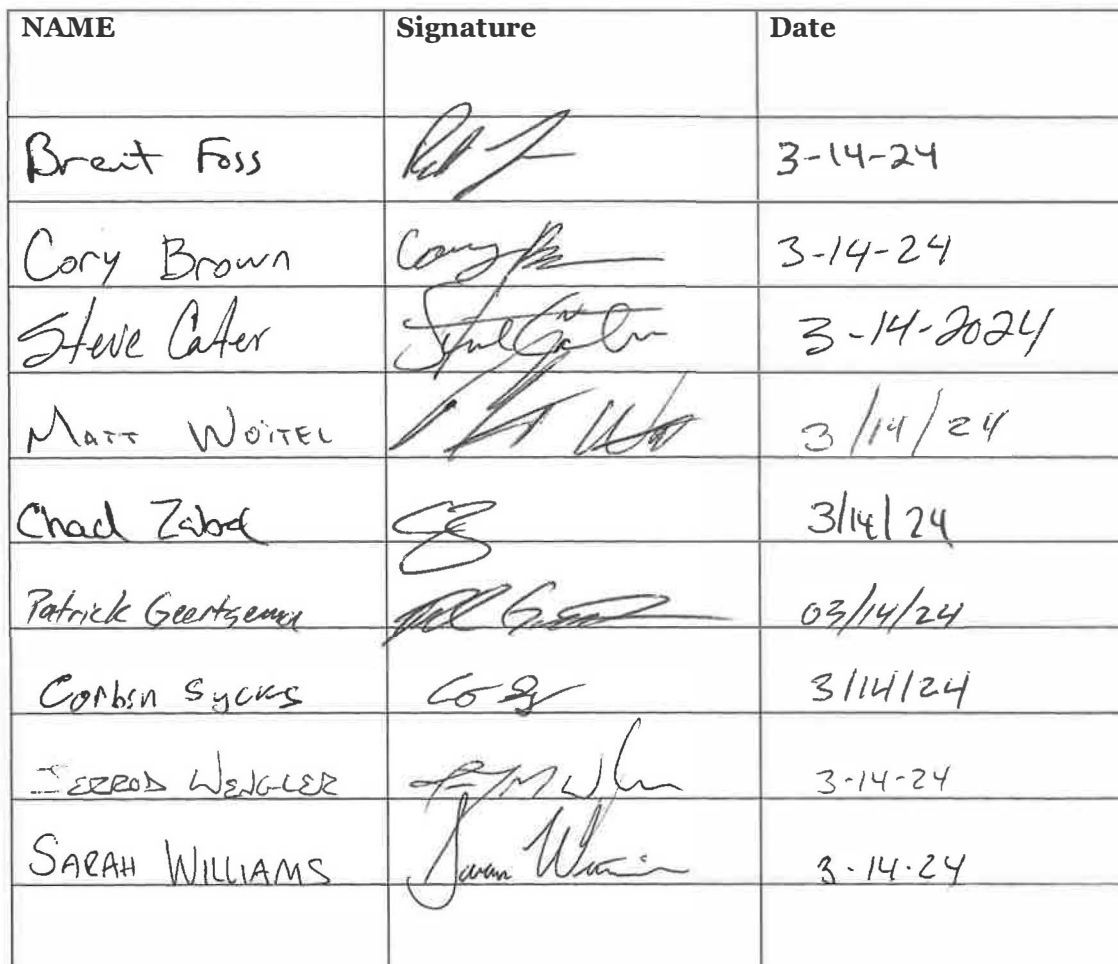 NAME Signature Date
Brent Foss 3-14-24
Cory Brown Cory 3-14-24
Steve Cater 3-14-2024
MATT WOITEL 3/14/24
Chad Zabel 3/14/24
Patrick Geertsema 03/14/24
Corbin Sycks 3/14/24
JERROD WENGLER 3-14-24
SARAH WILLIAMS 3-14-24